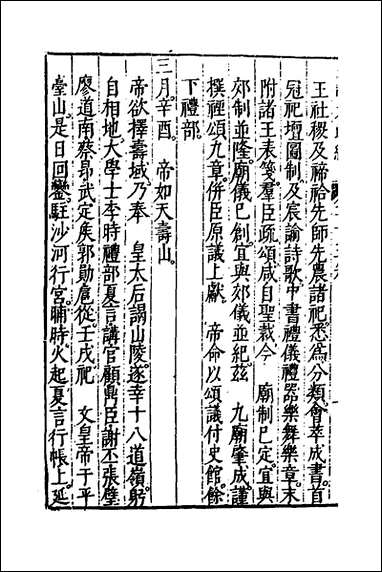 王社稷及禘祫先師先農諸祀悉為分類會萃成書首
冠祀壇圖制及宸諭詩歌中書禮儀禮器樂舞樂章末
附諸王表箋羣臣疏頌咸自聖裁今　廟制已定宜與
郊制並隆廟儀已創宜與郊儀並紀茲　九廟肇成謹
撰裡頌九章併臣原議上獻　帝命以頌議付史館餘
下禮部
三月辛酉　帝如天壽山
帝欲擇壽域乃奉　皇太后謁山陵遂幸十八道嶺躬
自相地大學士李時禮部夏言講官顧鼎臣謝丕張璧
廖道南蔡昂武定侯郭勛扈從壬戌祀　文皇帝于平
臺山是日回鑾駐沙河行宮晡時火起夏言行帳上延